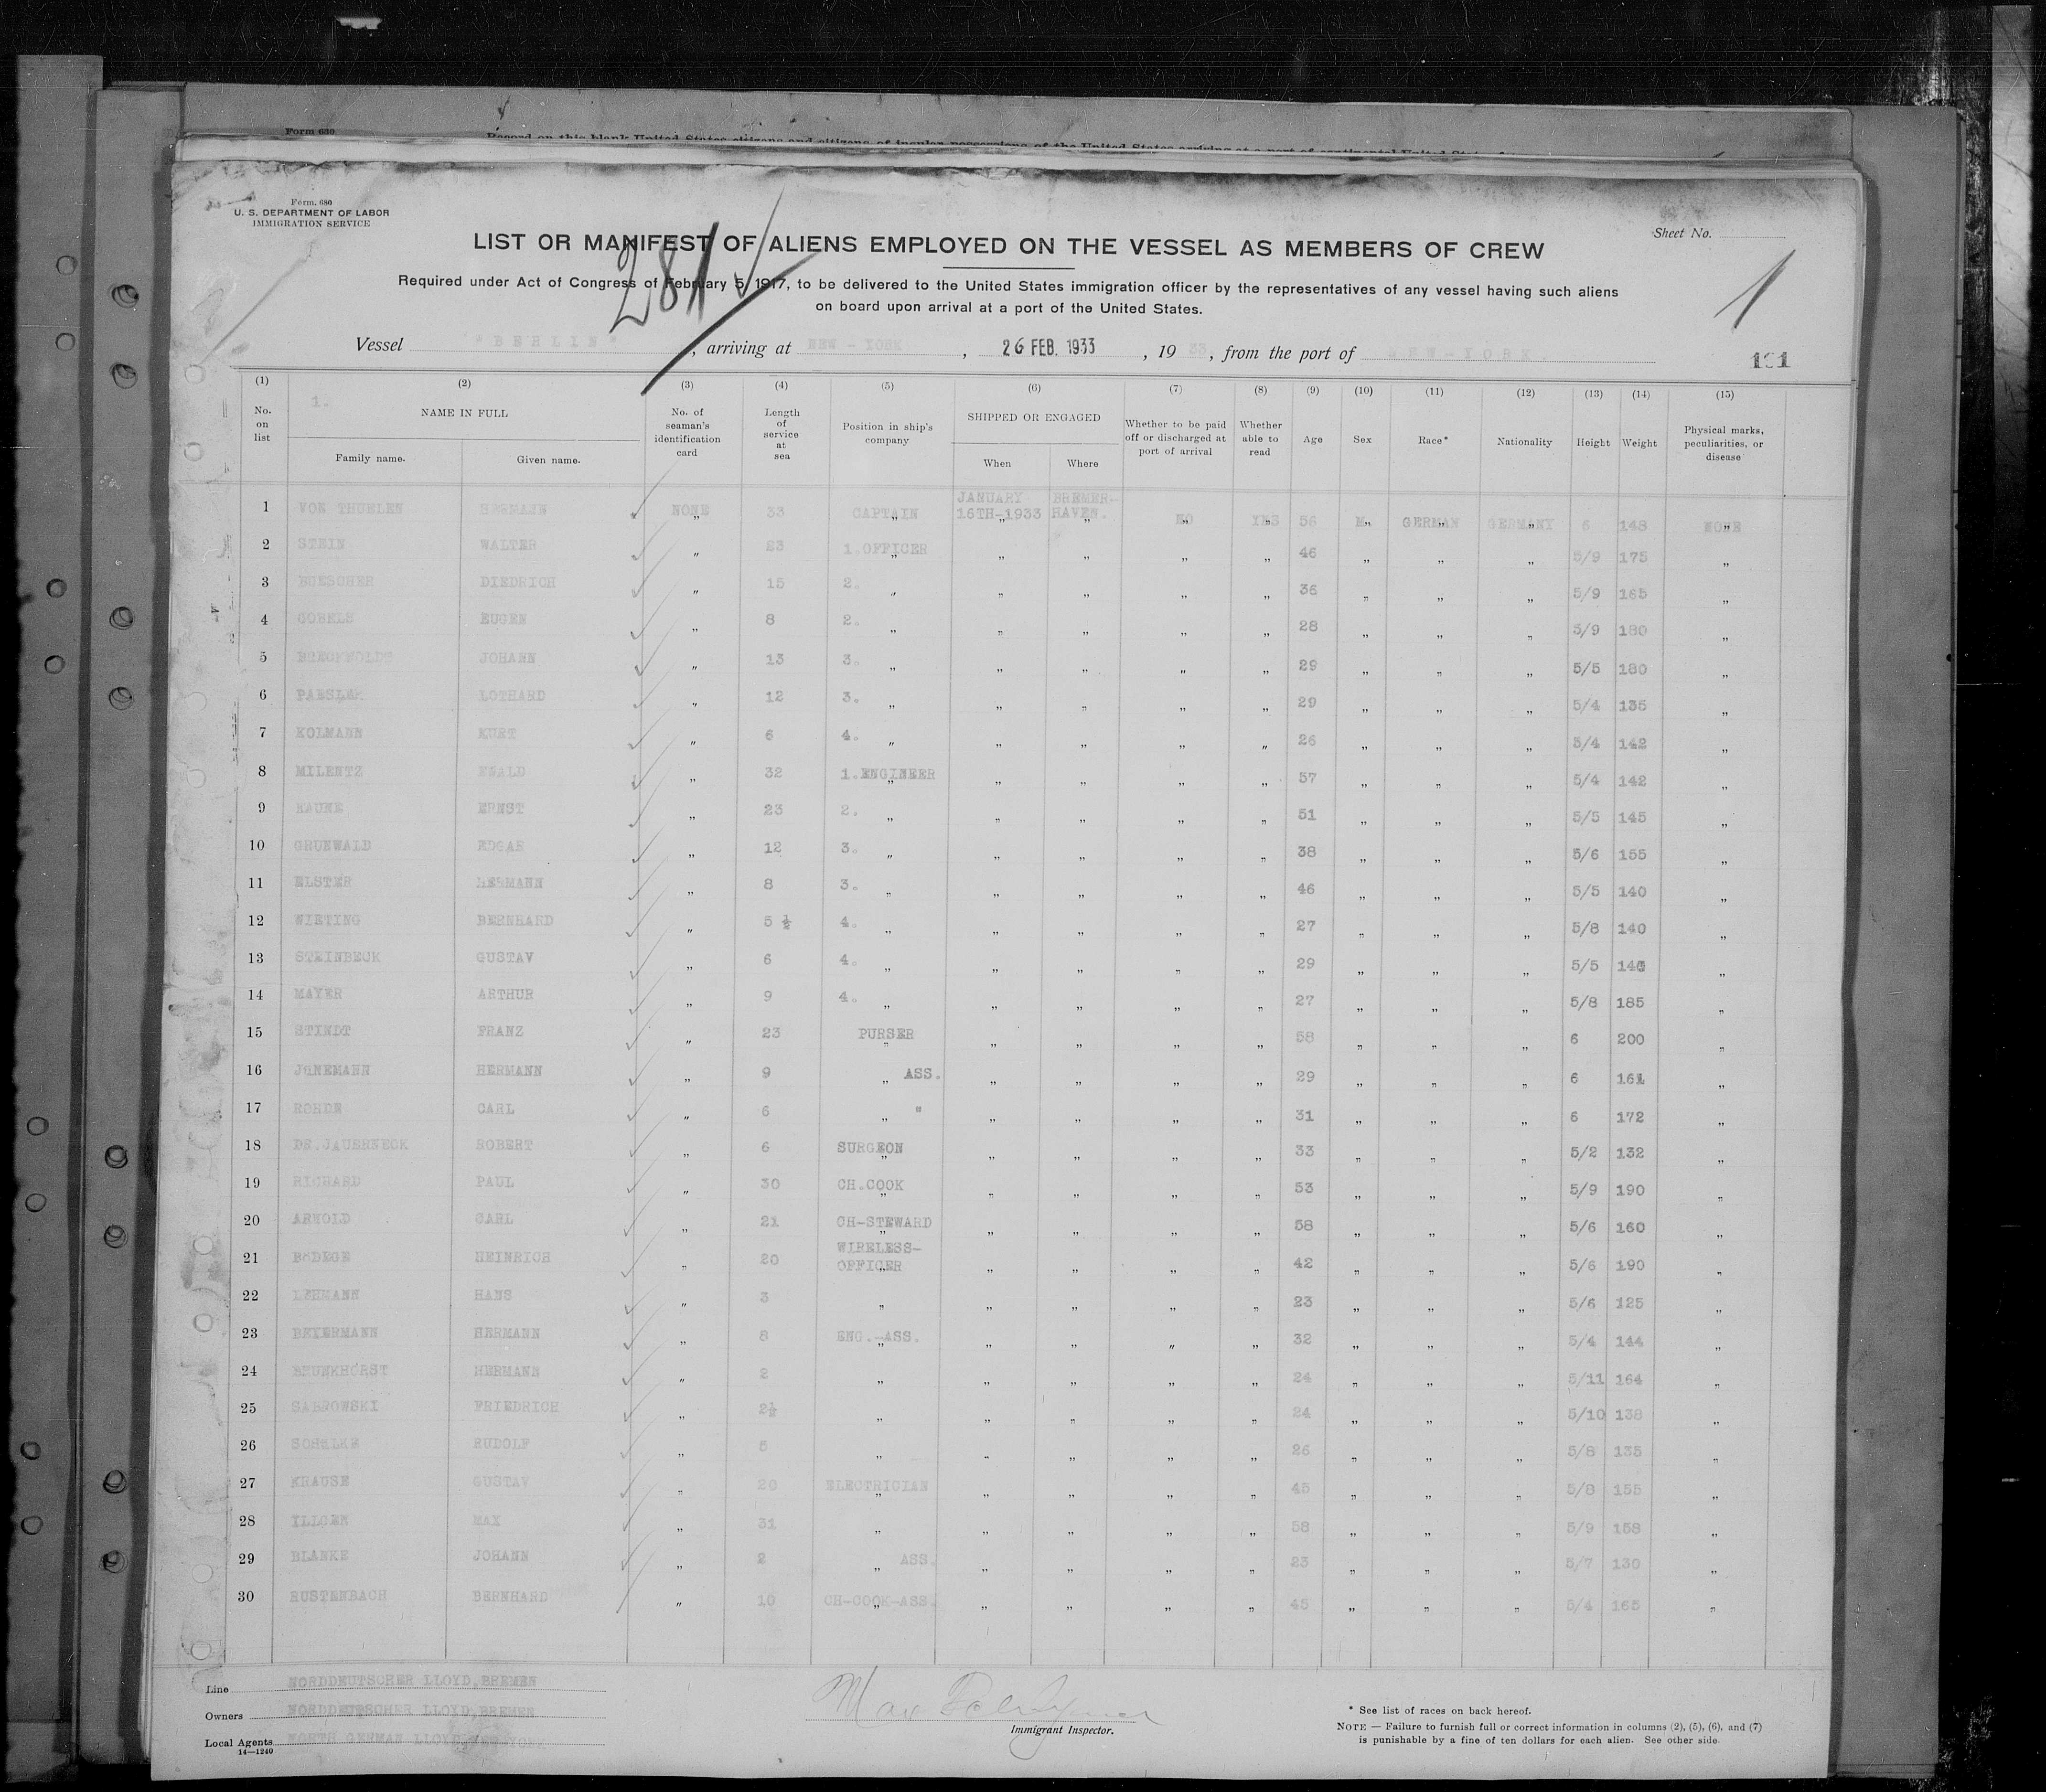 Form 630
Record on this blank United States citizens and citizens of insular possessions of the United States arriving at a port of continental United States
Form 680
U. S. DEPARTMENT OF LABOR
IMMIGRATION SERVICE
Sheet No.
LIST OR MANIFEST OF ALIENS EMPLOYED ON THE VESSEL AS MEMBERS OF CREW
281
1
Required under Act of Congress of February 5, 1917, to be delivered to the United States immigration officer by the representatives of any vessel having such aliens
on board upon arrival at a port of the United States.
Vessel "BERLIN", arriving at NEW-YORK, 26 FEB. 1933, 1933, from the port of NEW-YORK
191
(1) (2) (3) (4) (5) (6) (7) (8) (9) (10) (11) (12) (13) (14) (15)
No. on list 1. NAME IN FULL Family name. Given name. No. of seaman's identification card Length of service at sea Position in ship's company SHIPPED OR ENGAGED When Where Whether to be paid off or discharged at port of arrival Whether able to read Age Sex Race* Nationality Height Weight Physical marks, peculiarities, or disease
1 VON THUELEN HERMANN NONE 33 CAPTAIN JANUARY 16TH-1933 BREMER-HAVEN. NO YES 56 M. GERMAN GERMANY 6 148 NONE
2 STEIN WALTER " 23 1.OFFICER " " " " 46 " " " 5/9 175 "
3 BUESCHER DIEDRICH " 15 2. " " " " " 36 " " " 5/9 165 "
4 GOBELS EUGEN " 8 2. " " " " " 28 " " " 5/9 180 "
5 JOHANN " 13 3. " " " " " 29 " " " 5/5 180 "
6 PAESLER LOTHARD " 12 3. " " " " " 29 " " " 5/4 135 "
7 KOLMANN KURT " 6 4. " " " " " 26 " " " 5/4 142 "
8 MILENTZ EWALD " 32 1.ENGINEER " " " " 57 " " " 5/4 142 "
9 ERNST " 23 2. " " " " " 51 " " " 5/5 145 "
10 GRUEWALD EDGAR " 12 3. " " " " " 38 " " " 5/6 155 "
11 ELSTER HERMANN " 8 3. " " " " " 46 " " " 5/5 140 "
12 WIETING BERNHARD " 5 ½ 4. " " " " " 27 " " " 5/8 140 "
13 STEINBECK GUSTAV " 6 4. " " " " " 29 " " " 5/5 "
14 MAYER ARTHUR " 9 4. " " " " " 27 " " " 5/8 185 "
15 STINDT FRANZ " 23 PURSER " " " " 58 " " " 6 200 "
16 HERMANN " 9 " ASS. " " " " 29 " " " 6 161 "
17 ROHDE CARL " 6 " " " " " " 31 " " " 6 172 "
18 DR.JAUERNECK ROBERT " 6 SURGEON " " " " 33 " " " 5/2 132 "
19 RICHARD PAUL " 30 CH.COOK " " " " 53 " " " 5/9 190 "
20 ARNOLD CARL " 21 CH-STEWARD " " " " 58 " " " 5/6 160 "
21 BÖDEGE HEINRICH " 20 WIRELESS-OFFICER " " " " 42 " " " 5/6 190 "
22 LEHMANN HANS " 3 " " " " " 23 " " " 5/6 125 "
23 BEYERMANN HERMANN " 8 ENG.-ASS. " " " " 32 " " " 5/4 144 "
24 BRUNKHORST HERMANN " 2 " " " " " 24 " " " 5/11 164 "
25 SABNOWSKI FRIEDRICH " 2½ " " " " " 24 " " " 5/10 138 "
26 SCHELKE RUDOLF " 5 " " " " " 26 " " " 5/8 135 "
27 KRAUSE GUSTAV " 20 ELECTRICIAN " " " " 45 " " " 5/8 155 "
28 ILLGEN MAX " 31 " " " " " 58 " " " 5/9 158 "
29 BLANKE JOHANN " 2 " ASS. " " " " 23 " " " 5/7 130 "
30 RUSTENBACH BERNHARD " 10 CH-COOK-ASS. " " " " 45 " " " 5/4 165 "
Line NORDDEUTSCHER LLOYD,BREMEN
Owners NORDDEUTSCHER LLOYD,BREMEN
Local Agents NORTH GERMAN LLOYD,NEWYORK
14—1240
Max
Immigrant Inspector.
* See list of races on back hereof.
NOTE — Failure to furnish full or correct information in columns (2), (5), (6), and (7)
is punishable by a fine of ten dollars for each alien. See other side.